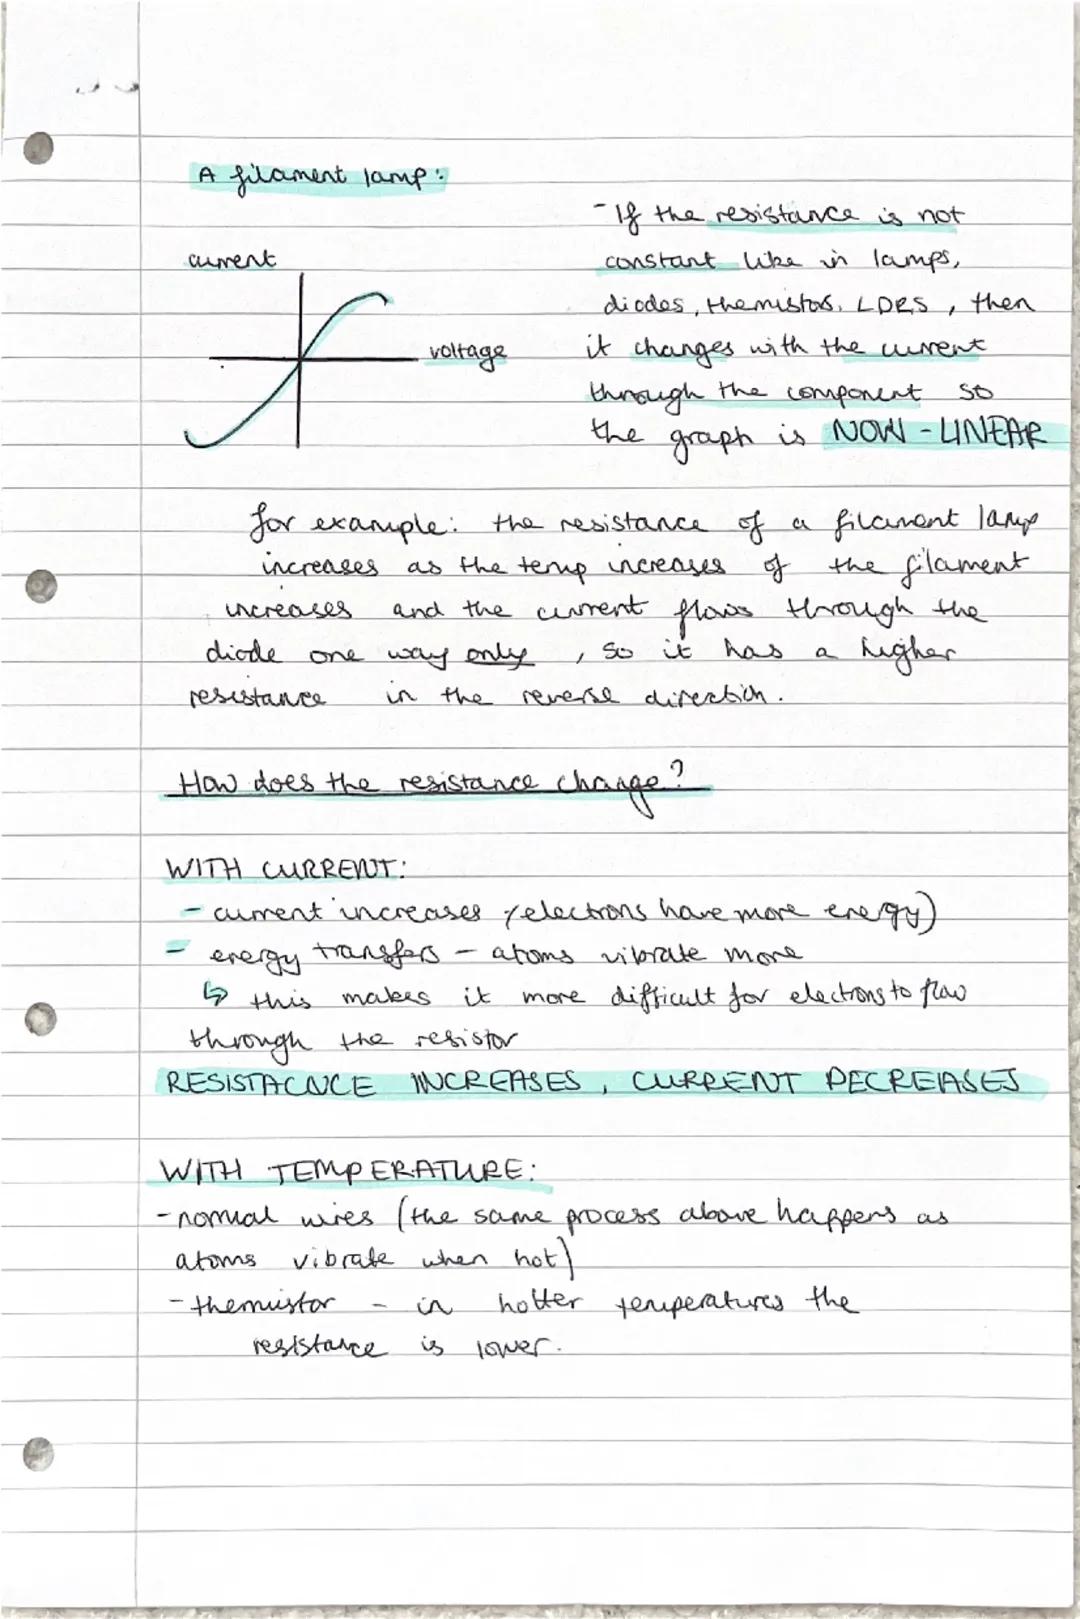 A filament lamp:
current
voltage
- If the resistance is not
constant like in lamps,
diodes, themistors, LDRS, then
it changes with the current
through the component so
the graph is NON-LINEAR
for example: the resistance of a filament lamp
increases as the temp increases of the filament
increases and the current flows through the
diode one way only, so it has a higher
resistance in the reverse direction.
How does the resistance change?
WITH CURRENT:
- current increases (electrons have more energy)
- energy transfers - atoms vibrate more
↳ this makes it more difficult for electrons to flow
through the resistor
RESISTACNCE INCREASES, CURRENT DECREASES
WITH TEMPERATURE:
- normal wires (the same process above happens as
atoms vibrate when hot)
- themistor - in hotter temperatures the
resistance is lower.